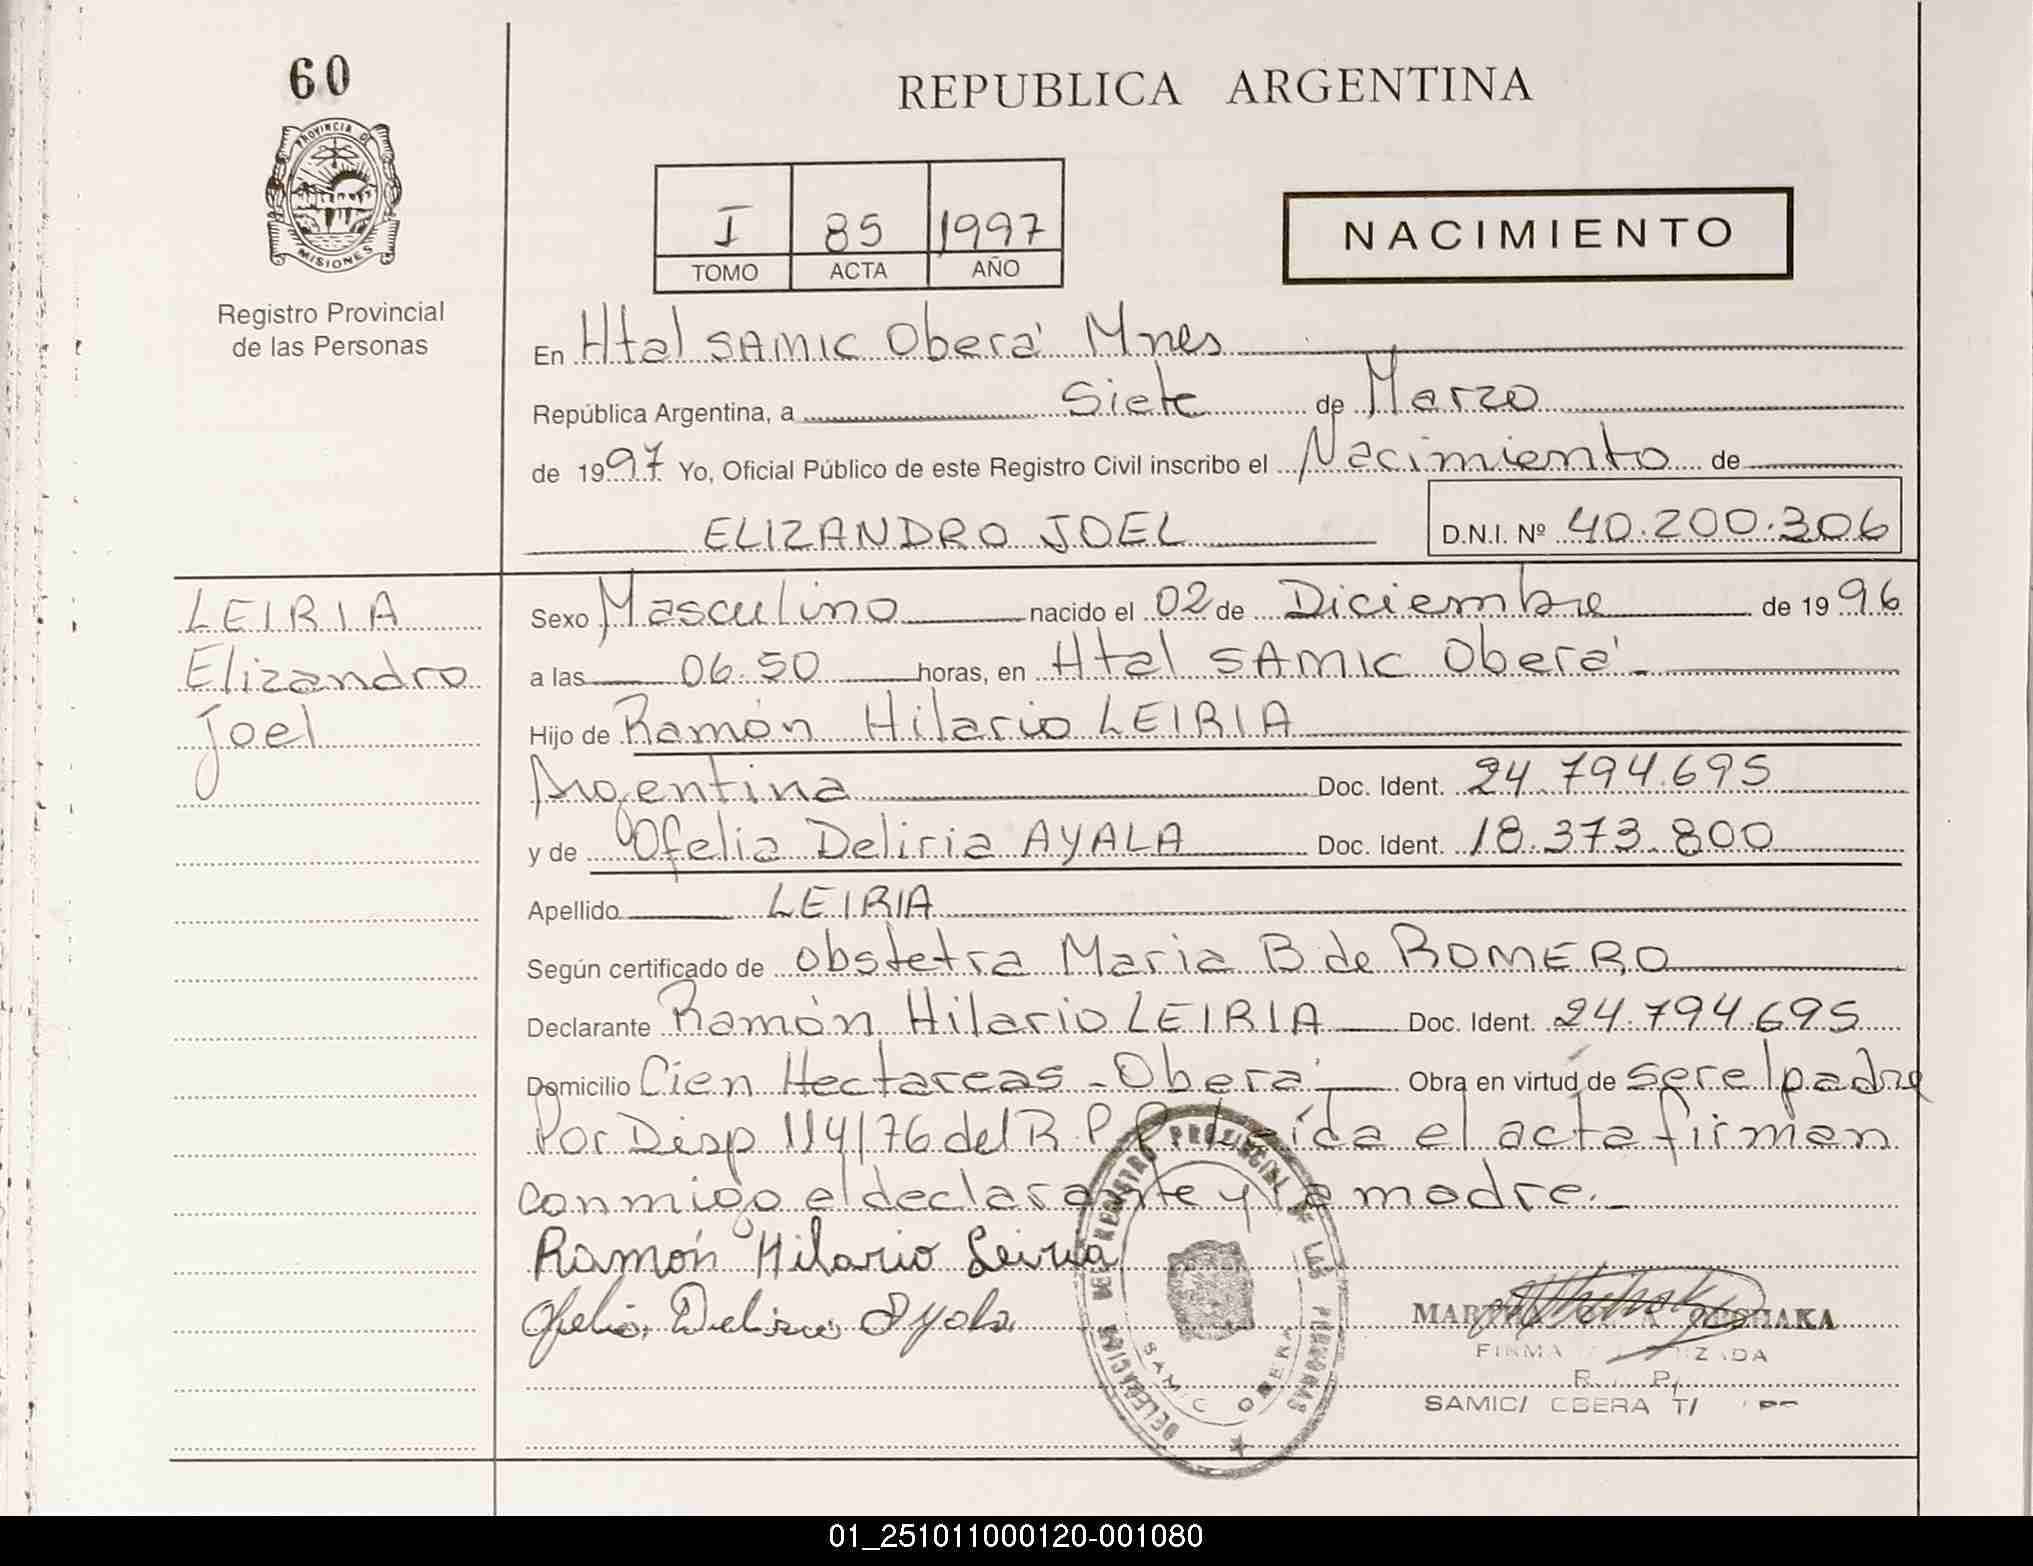 60
REPUBLICA ARGENTINA
PROVINCIA DE
MISIONES
I 85 1997
TOMO ACTA AÑO
NACIMIENTO
Registro Provincial
de las Personas
En Htal SAMIC Oberá Mnes
República Argentina, a Siete de Marzo
de 1997 Yo, Oficial Público de este Registro Civil inscribo el Nacimiento de
ELIZANDRO JOEL D.N.I. Nº 40.200.306
LEIRIA
Elizandro
Joel
Sexo Masculino nacido el 02 de Diciembre de 1996
a las 06.50 horas, en Htal SAMIC Oberá
Hijo de Ramón Hilario LEIRIA
Argentina Doc. Ident. 24.794.695
y de Ofelia Deliria AYALA Doc. Ident. 18.373.800
Apellido LEIRIA
Según certificado de obstetra Maria B de ROMERO
Declarante Ramón Hilario LEIRIA Doc. Ident. 24.794.695
Domicilio Cien Hectareas - Oberá Obra en virtud de ser el padre
Por Disp 114/76 del R.P.P. Leída el acta firman
conmigo el declarante y la madre.
Ramón Hilario Leiria
Ofelia Deliria Ayala
DELEGACION DEL REGISTRO PROVINCIAL DE LAS PERSONAS
SAMIC OBERA
FIRMA
R. P.
SAMIC/ OBERA
01_251011000120-001080